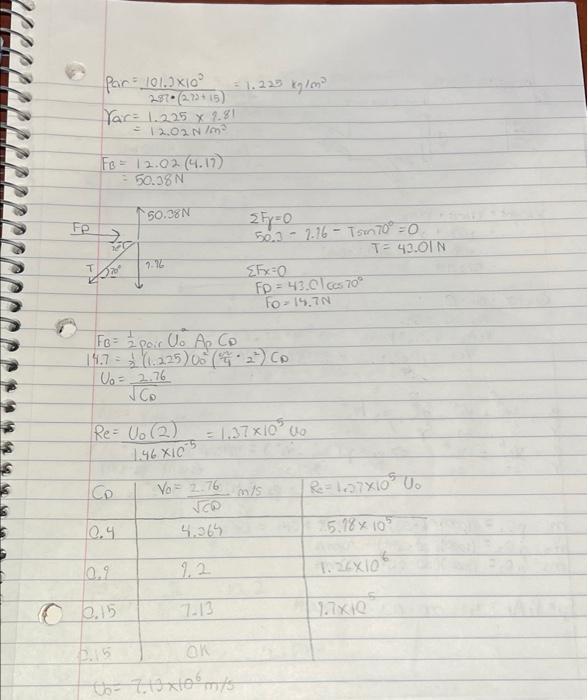 ρair = 101.3×10³ / 287•(273+15) = 1.225 kg/m³
γair = 1.225 × 9.81
= 12.02 N/m³
FB = 12.02 (4.19)
= 50.38N
50.38N
FD
70°
T
70°
9.96
ΣFy=0
50.3 - 9.96 - Tsin70° = 0
T = 43.01N
ΣFx=0
FD = 43.01cos70°
FD = 14.7N
FB = 1/2 ρair U₀² Ap CD
14.7 = 1/2 (1.225) U₀² (π/4 • 2²) CD
U₀ = 2.76 / √CD
Re = U₀(2) / 1.46 ×10⁻⁵ = 1.37×10⁵ U₀
CD | V₀ = 2.76 / √CD m/s | Re = 1.37×10⁵ U₀
0.4 | 4.364 | 5.98×10⁵
0.9 | 9.2 | 1.26×10⁶
0.15 | 7.13 | 9.7×10⁵
0.15 | OK
U₀ = 7.13×10⁶ m/s